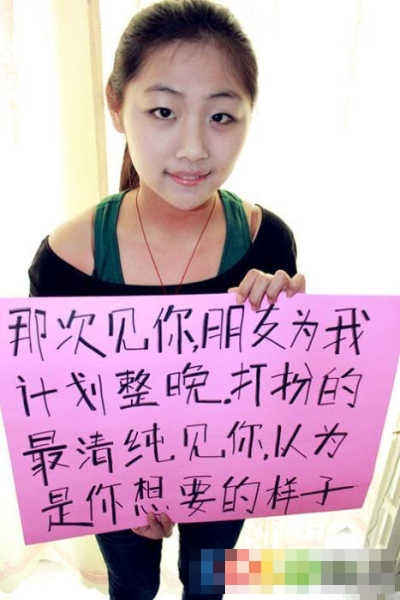 那次见你,朋友为我
计划整晚.打扮的
最清纯见你,以为
是你想要的样子